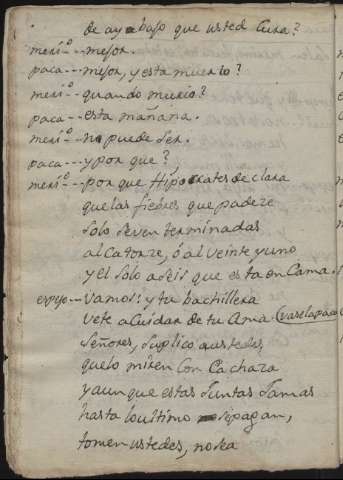 de ay abaso que usted Cura?
meri.º -- mejor.
paca --- mejor, y esta muerto?
meri.º -- quando murio?
paca --- esta mañana.
meri.º -- no puede ser.
paca --- y por que?
meri.º -- por que Hipocrates declara
que las fiebres que padeze
solo se ven terminadas
al Catorze, ó al veinte y uno
y el solo a seis que esta en Cama.
espejo -- vamos: y tu bachillera
vete a Cuidar de tu Ama. (vase la paca
Señores, suplico a ustedes,
que lo miren Con Cachaza
y aun que estas Juntas Jamas
hasta lo ultimo se pagan,
tomen ustedes, no sea